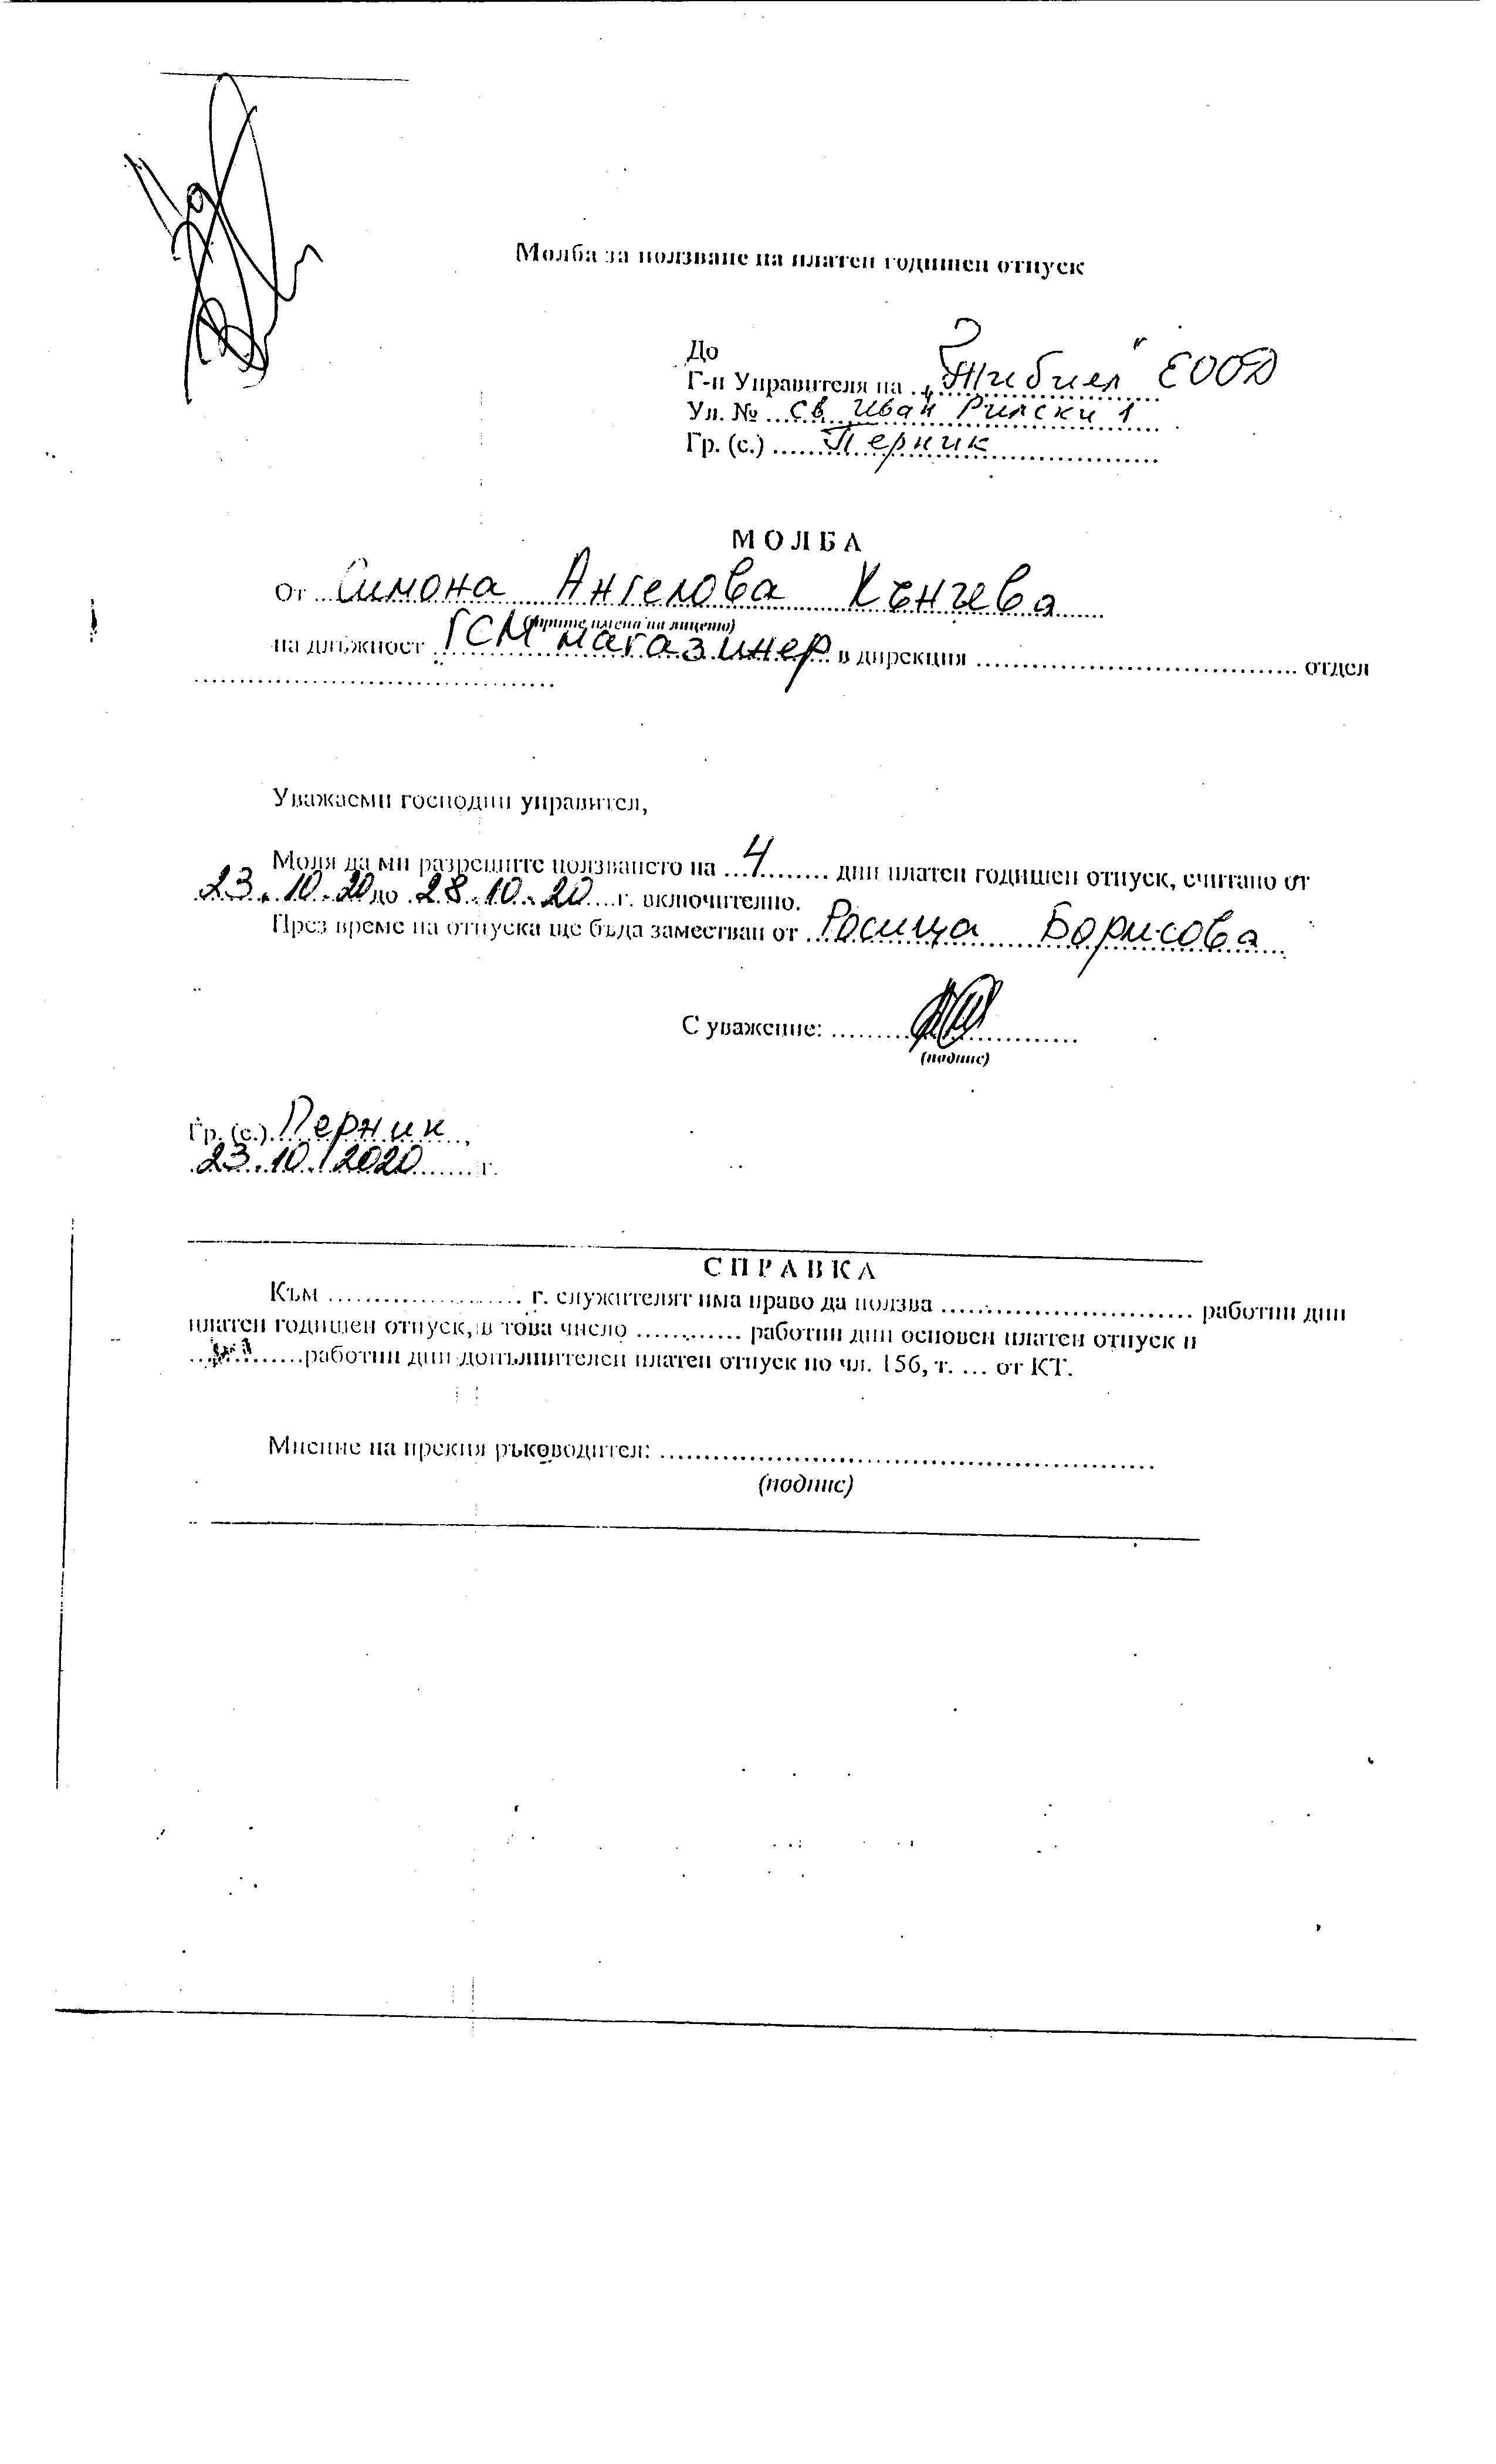 Молба за ползване на платен годишен отпуск
До
Г-н Управителя на „Жибиел" ЕООД
Ул. № Св. Иван Рилски 1
Гр. (с.) Перник
МОЛБА
От Симона Ангелова Кънчева
(трите имена на лицето)
на длъжност ГСМ магазинер в дирекция отдел
Уважаеми господин управител,
Моля да ми разрешите ползването на 4 дни платен годишен отпуск, считано от
23.10.20 до 28.10.20 г. включително.
През време на отпуска ще бъда заместван от Росица Борисова
С уважение:
(подпис)
Гр. (с.) Перник,
23.10.2020 г.
СПРАВКА
Към г. служителят има право да ползва работни дни
платен годишен отпуск, в това число работни дни основен платен отпуск и
работни дни допълнителен платен отпуск по чл. 156, т. ... от КТ.
Мнение на прекия ръководител:
(подпис)